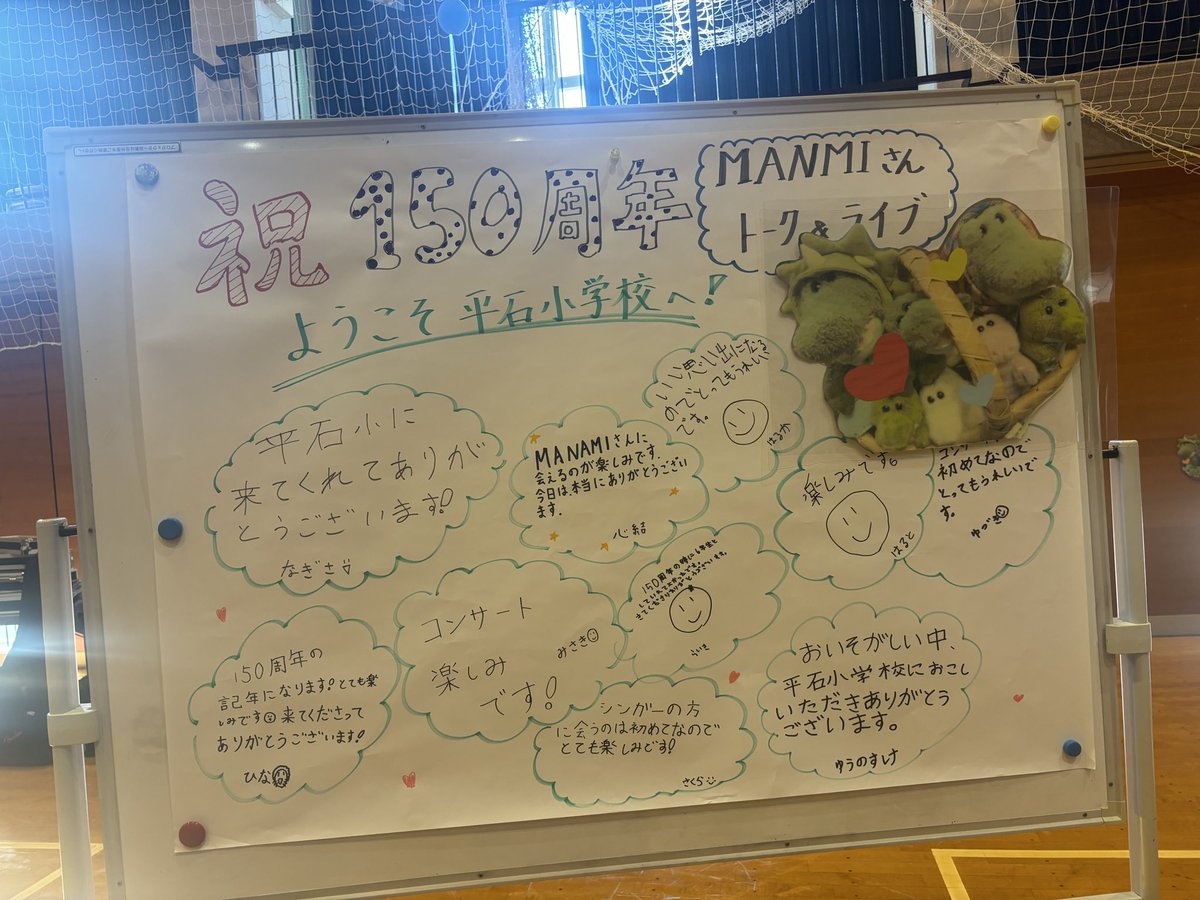 祝 150周年
MANMIさん
トーク&ライブ
ようこそ 平石小学校へ!
いい思い出になる
のでとってもうれしい
です。
はるか
平石小に
来てくれてありが
とうございます!
なぎさ
MANAMIさんに
会えるのが楽しみです。
今日は、本当にありがとうござい
ます。
心結
楽しみです。
はると
初めてなので
とってもうれしいで
す。
ゆづき
150周年の時に6年生と
コンサート
楽しみ
です!
みさき
150周年の
記年になります!とても楽
しみです 来てくださって
ありがとうございます!
ひな
シンガーの方
に会うのは初めてなので
とても楽しみです!
さくら
おいそがしい中、
平石小学校におこし
いただきありがとう
ございます。
ゆうのすけ